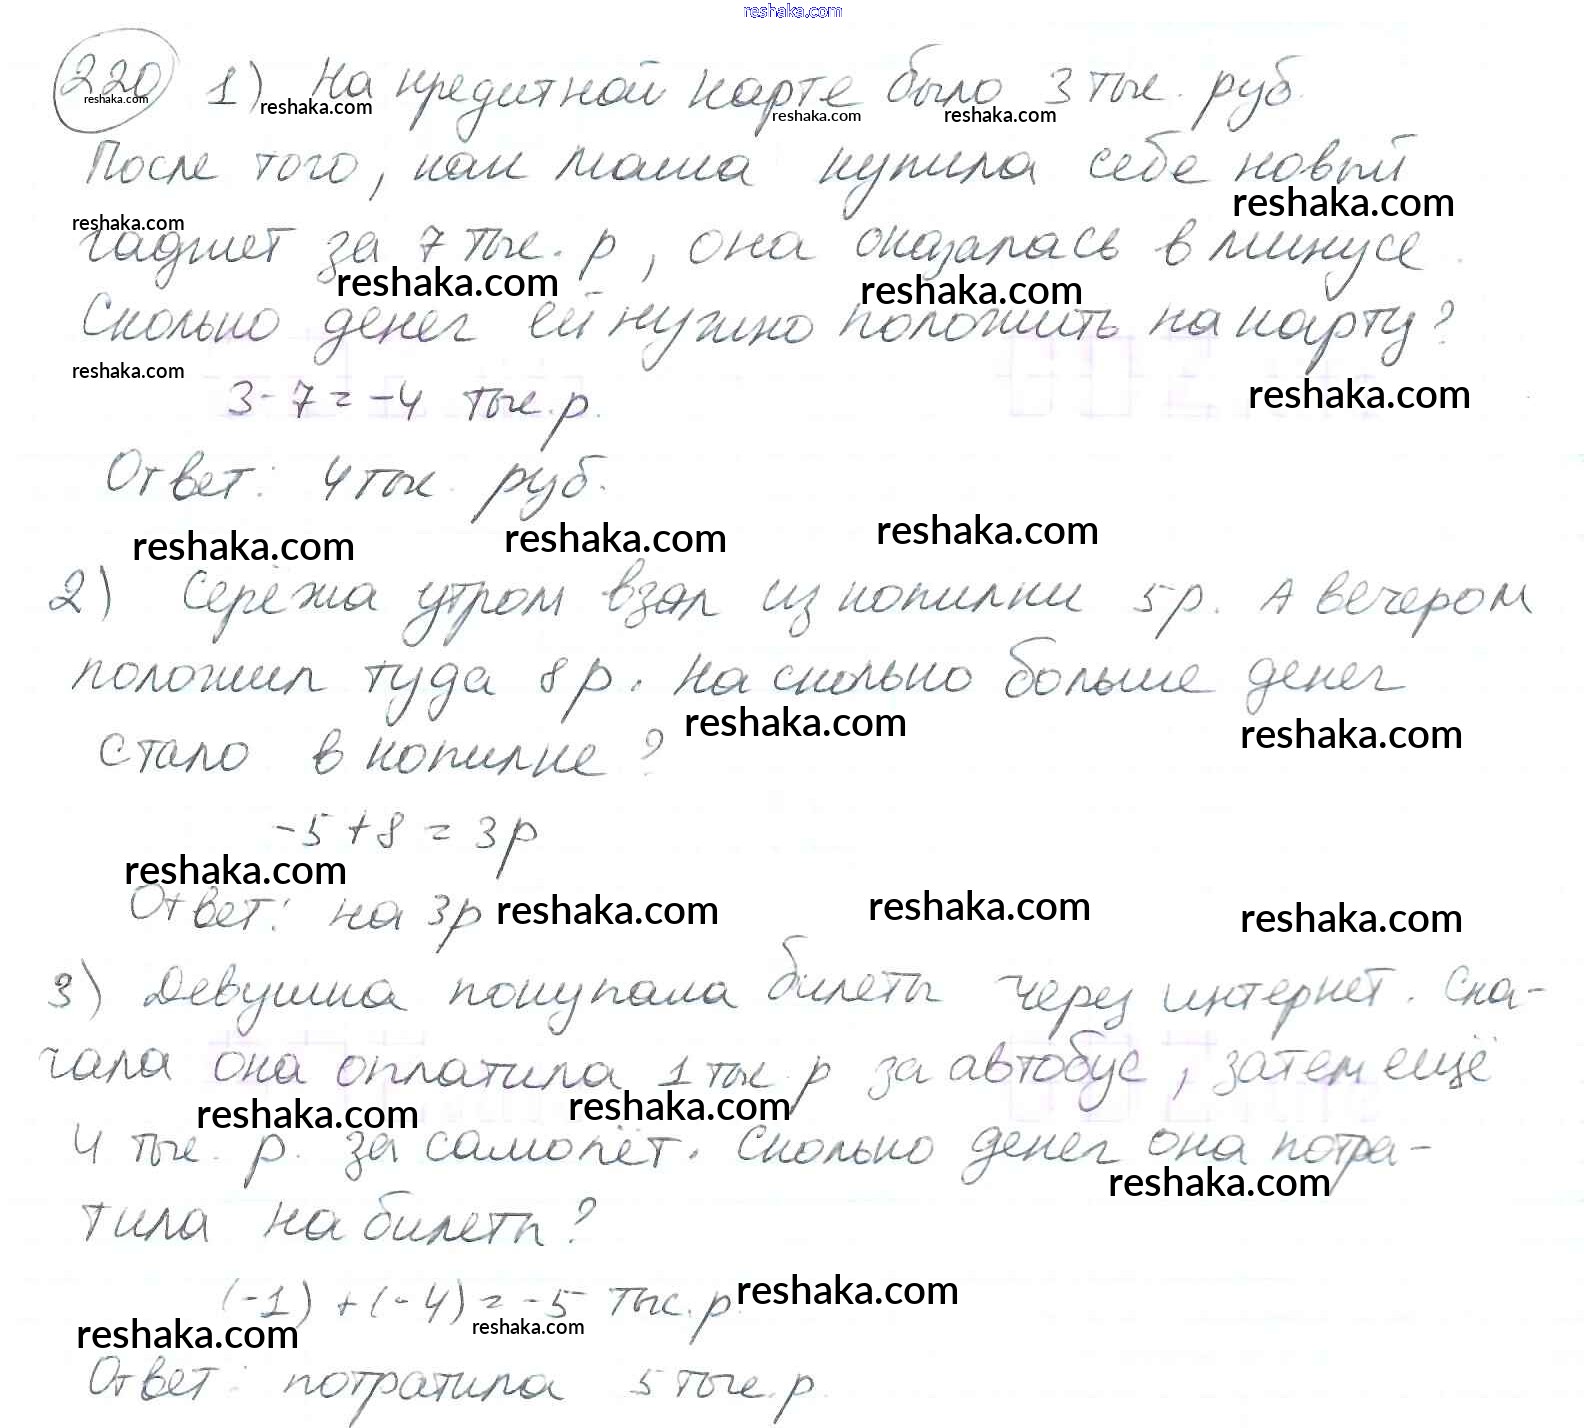 reshaka.com
220 1) На кредитной карте было 3 тыс. руб.
reshaka.com reshaka.com reshaka.com reshaka.com
После того, как Маша купила себе новый
reshaka.com
reshaka.com
гаджет за 7 тыс. р, она оказалась в минусе.
reshaka.com reshaka.com
Сколько денег ей нужно положить на карту?
reshaka.com
3-7=-4 тыс.р.
reshaka.com
Ответ: 4 тыс. руб.
reshaka.com reshaka.com reshaka.com
2) Серёжа утром взял из копилки 5р. А вечером
положил туда 8р. На сколько больше денег
reshaka.com reshaka.com
стало в копилке?
-5+8=3р
reshaka.com
Ответ: на 3р reshaka.com reshaka.com reshaka.com
3) Девушка покупала билеты через интернет. Сна-
чала она оплатила 1 тыс р за автобус, затем ещё
reshaka.com reshaka.com
4 тыс. р. за самолёт. Сколько денег она потра-
reshaka.com
тила на билеты?
(-1)+(-4)=-5 тыс.р. reshaka.com
reshaka.com reshaka.com
Ответ: потратила 5 тыс.р.